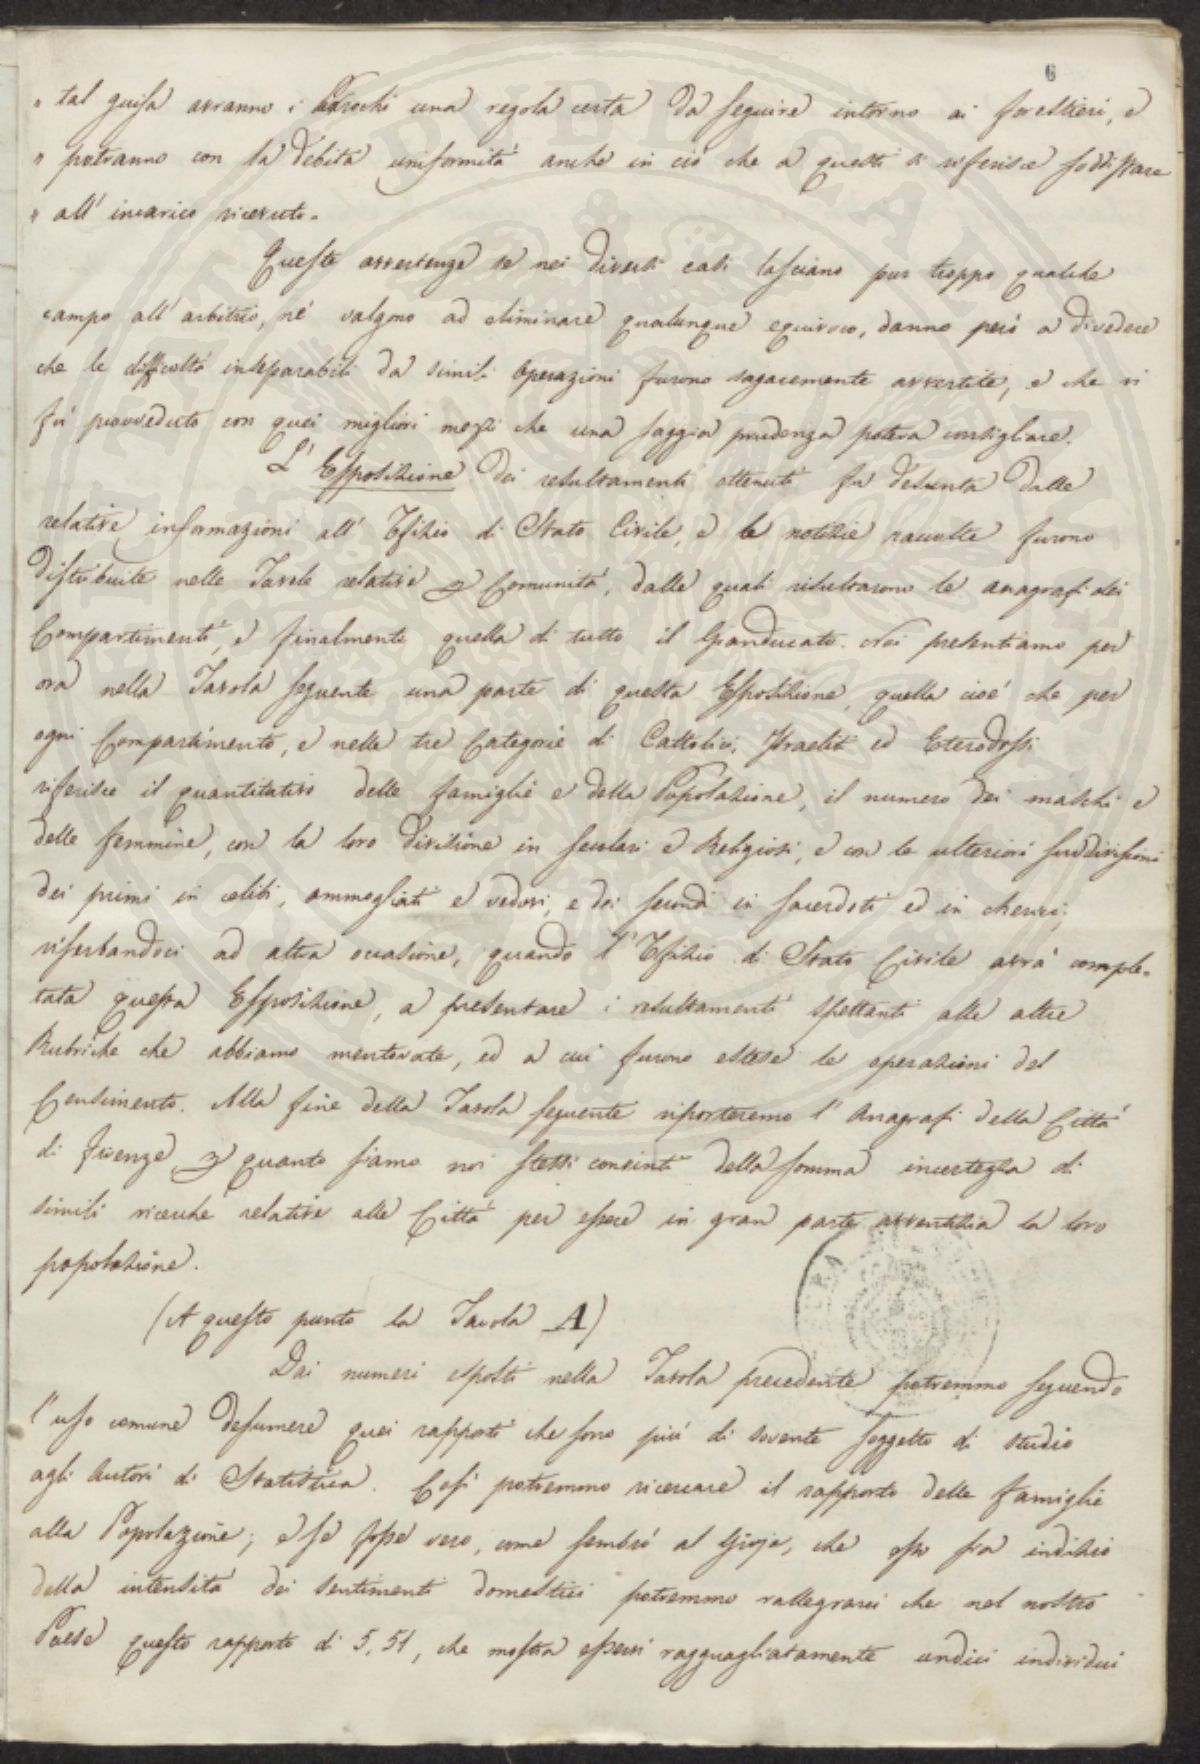 6
" tal guisa avranno i Parochi una regola certa da seguire intorno ai forestieri, e
" potranno con la debita uniformità anche in ciò che a questi si riferisce soddisfare
" all' incarico ricevuto.
Queste avvertenze se nei diversi casi lasciano pur troppo qualche
campo all' arbitrio, nè valgono ad eliminare qualunque equivoco, danno però a divedere
che le difficoltà inseparabili da simili operazioni furono sagacemente avvertite, e che vi
fù provveduto con quei migliori mezzi che una saggia prudenza poteva consigliare.
L' Esposizione dei resultamenti ottenuti fu desunta dalle
relative informazioni all' Ufizio di Stato Civile, e le notizie raccolte furono
distribuite nelle Tavole relative Comunità, dalle quali risultarono le anagrafi dei
Compartimenti, e finalmente quella di tutto il Granducato. Noi presentiamo per
ora nella Tavola seguente una parte di questa Esposizione, quella cioè che per
ogni Compartimento, e nelle tre Categorie di Cattolici, Israeliti ed Eterodossi
riferisce il quantitativo delle famiglie e della Popolazione, il numero dei maschi e
delle femmine, con la loro divisione in secolari e Religiosi, e con le ulteriori suddivisioni
dei primi in celibi, ammogliati e vedovi, e dei secondi in sacerdoti ed in cherici;
riserbandoci ad altra occasione, quando l' Ufizio di Stato Civile avrà comple-
tata questa Esposizione, a presentare i resultamenti spettanti alle altre
Rubriche che abbiamo mentovate, ed a cui furono estese le operazioni del
Censimento. Alla fine della Tavola seguente riporteremo l' Anagrafi della Città
di Firenze quanto siamo noi stessi convinti della somma incertezza di
simili ricerche relative alle Città per essere in gran parte avventizia la loro
popolazione.
(A questo punto la Tavola A)
Dai numeri esposti nella Tavola precedente potremmo seguendo
l' uso comune desumere quei rapporti che sono più di sovente soggetto di studio
agli Autori di Statistica. Così potremmo ricercare il rapporto delle famiglie
alla Popolazione; e se fosse vero, come sembrò al Gioja, che esso sia indizio
della intensità dei sentimenti domestici potremmo rallegrarci che nel nostro
Paese questo rapporto di 5,51, che mostra esservi ragguagliatamente undici individui